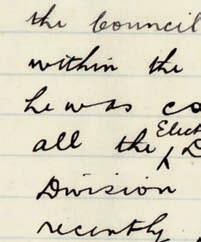 the Council
within the
he was co
Elect
all the D
Division
recently